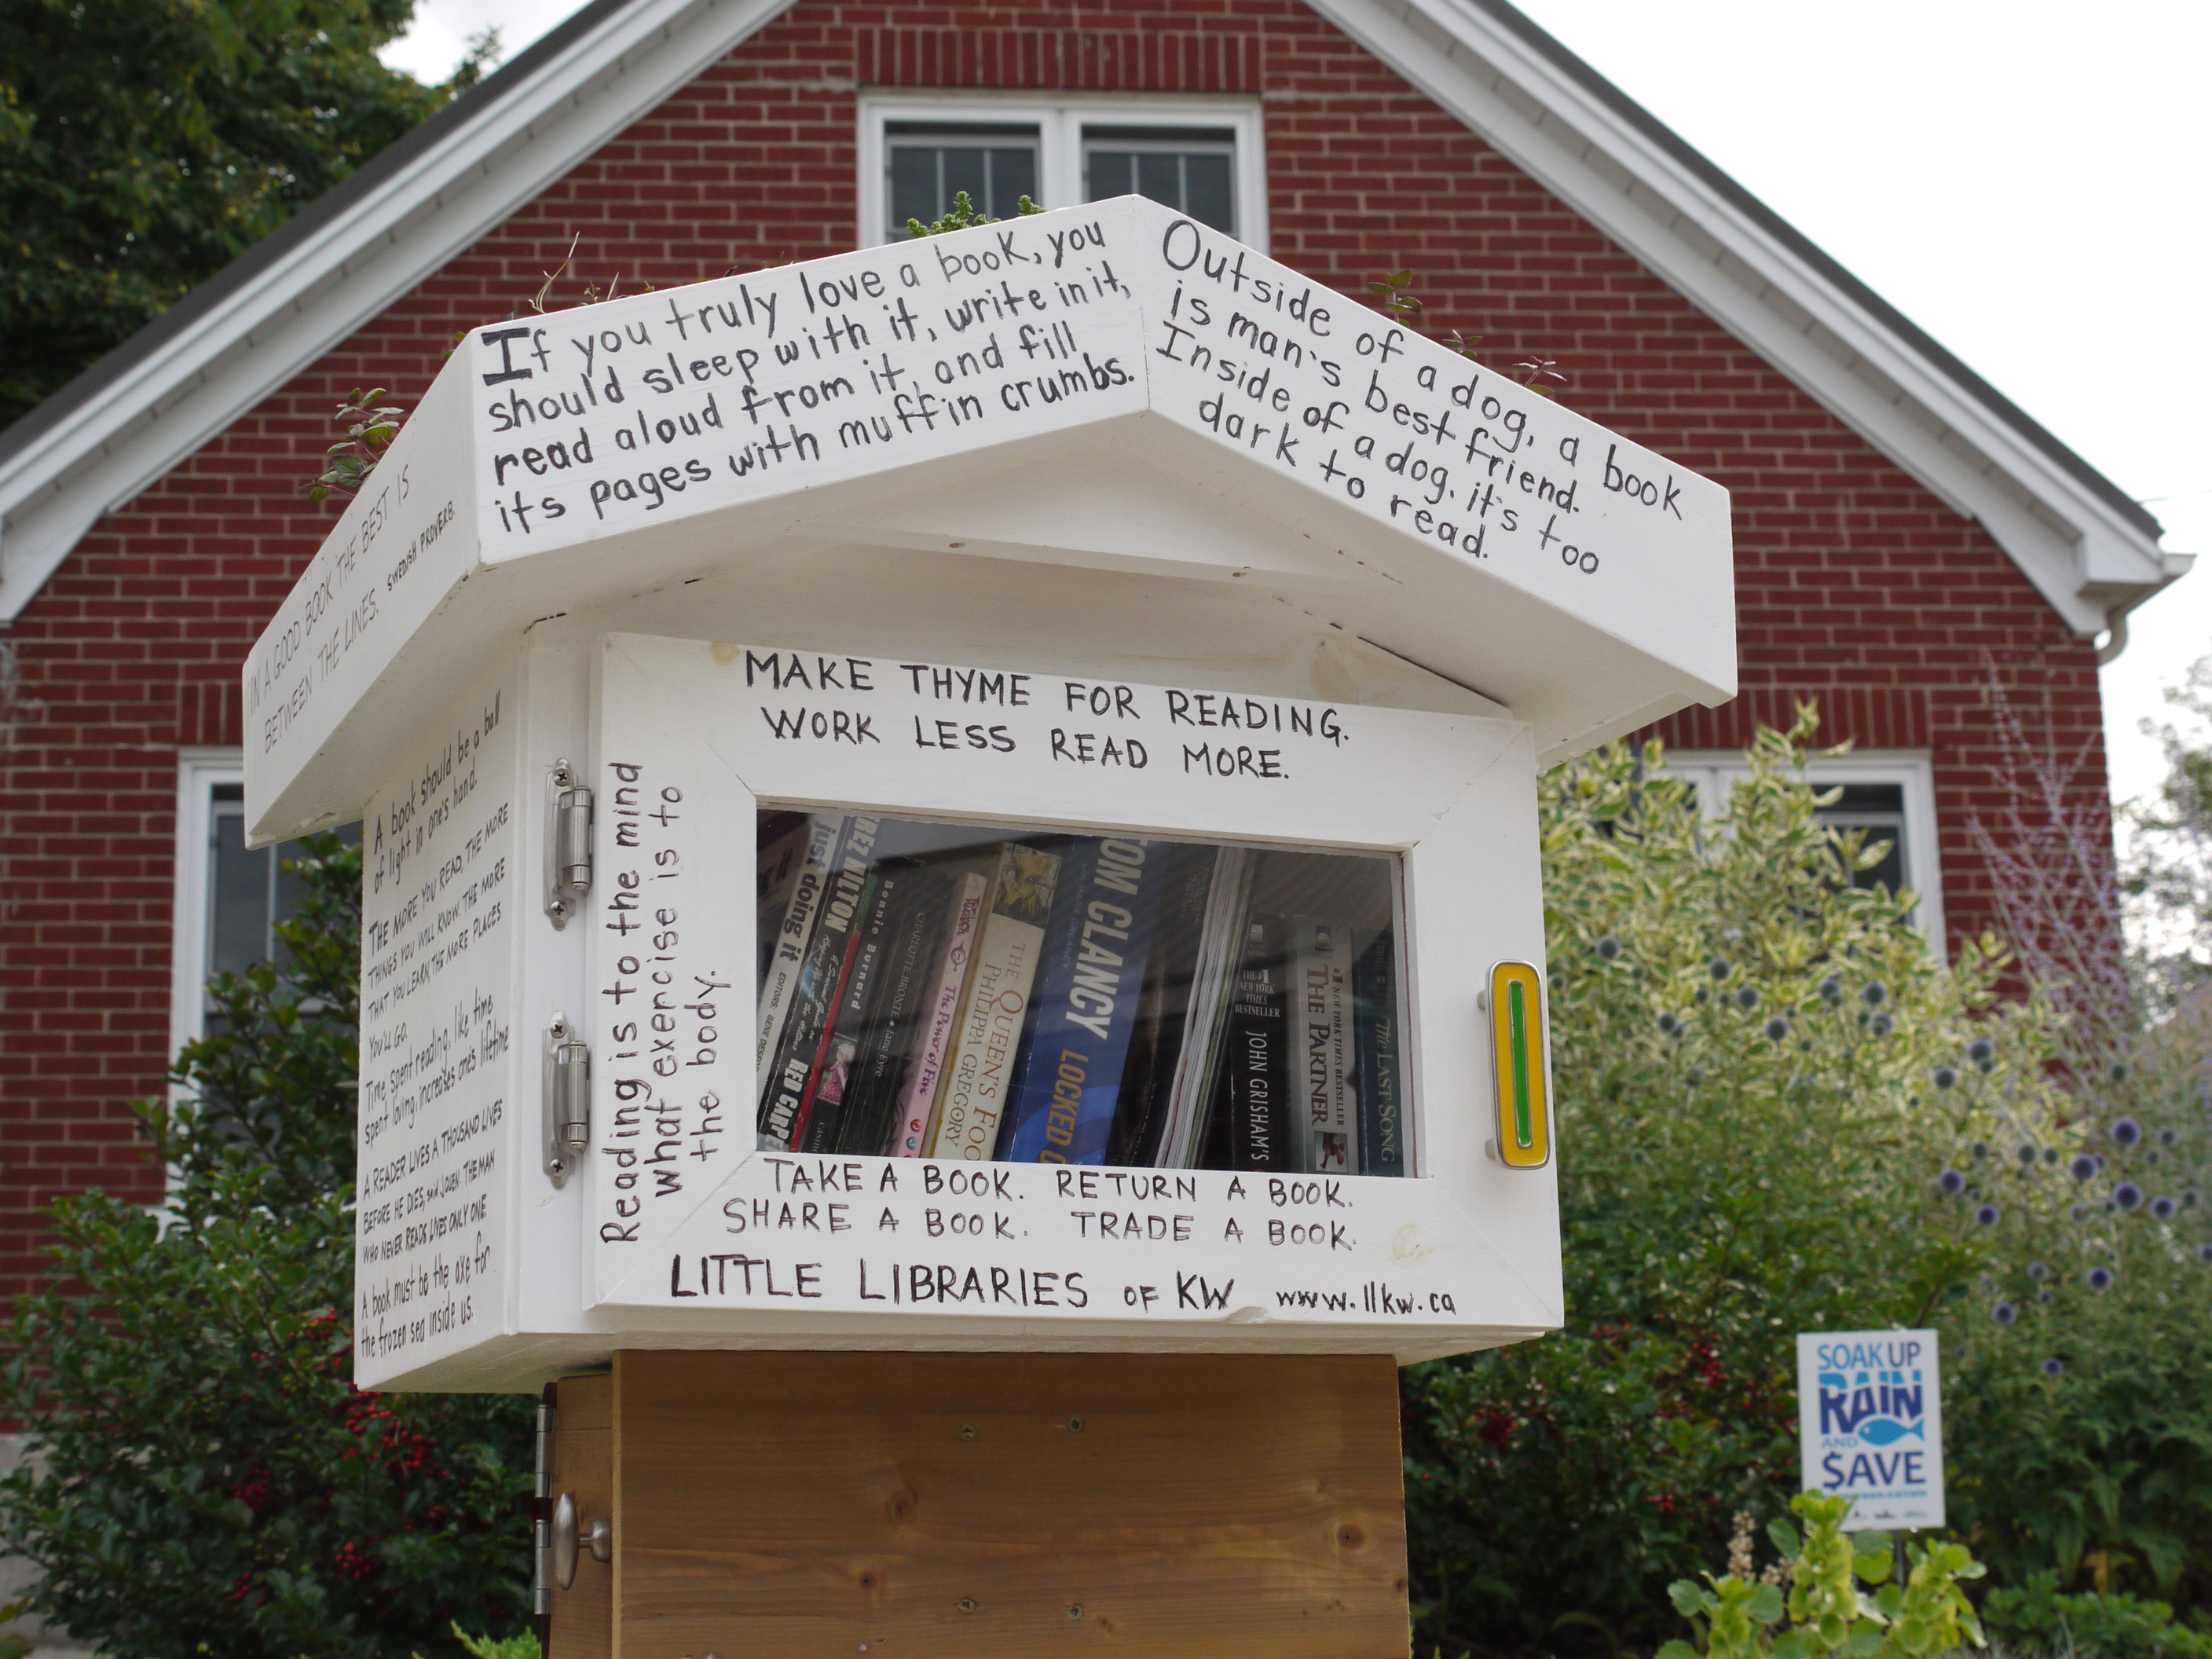 If you truly love a book, you
should sleep with it, write in it,
read aloud from it, and fill
its pages with muffin crumbs.
Outside of a dog, a book
is man's best friend.
Inside of a dog, it's too
dark to read.
IN A GOOD BOOK THE BEST IS
BETWEEN THE LINES. SWEDISH PROVERB.
A book should be a ball
of light in one's hand.
THE MORE YOU READ, THE MORE
THINGS YOU WILL KNOW. THE MORE
THAT YOU LEARN, THE MORE PLACES
YOU'LL GO.
Time spent reading, like time
spent loving, increases one's lifetime
A READER LIVES A THOUSAND LIVES
BEFORE HE DIES, said JOJEN. THE MAN
WHO NEVER READS LIVES ONLY ONE.
A book must be the axe for
the frozen sea inside us.
MAKE THYME FOR READING.
WORK LESS READ MORE.
Reading is to the mind
what exercise is to
the body.
just doing it
EDITORS: GENE
REZ HILTON
RED CARP
Bonnie Burnard
CHARLOTTE BRONTE • Jane Eyre
The Power of Five
THE QUEEN'S FOO
PHILIPPA GREGORY
TOM CLANCY
LOCKED O
THE #1
NEW YORK
TIMES
BESTSELLER
JOHN GRISHAM'S
#1 NEW YORK TIMES BESTSELLER
THE PARTNER
The LAST SONG
TAKE A BOOK. RETURN A BOOK.
SHARE A BOOK. TRADE A BOOK.
LITTLE LIBRARIES OF KW www.llkw.ca
SOAK UP
RAIN
AND
$AVE